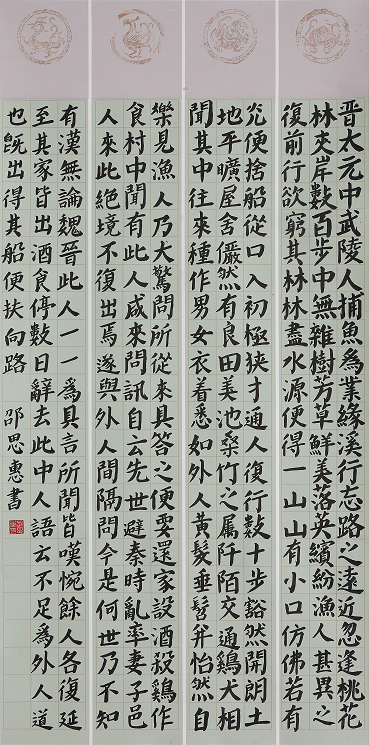 晋太元中武陵人捕魚為業緣溪行忘路之遠近忽逢桃花
林夾岸數百步中無雜樹芳草鮮美落英繽紛漁人甚異之
復前行欲窮其林林盡水源便得一山山有小口仿佛若有
光便捨船從口入初極狹才通人復行數十步豁然開朗土
地平曠屋舍儼然有良田美池桑竹之属阡陌交通鷄犬相
聞其中往來種作男女衣着悉如外人黃髮垂髫并怡然自
樂見漁人乃大驚問所從來具答之便要還家設酒殺鷄作
食村中聞有此人咸來問訊自云先世避秦時亂率妻子邑
人來此絕境不復出焉遂與外人間隔問今是何世乃不知
有漢無論魏晉此人一一為具言所聞皆嘆惋餘人各復延
至其家皆出酒食停數日辭去此中人語云不足為外人道
也既出得其船便扶向路 邵思惠書